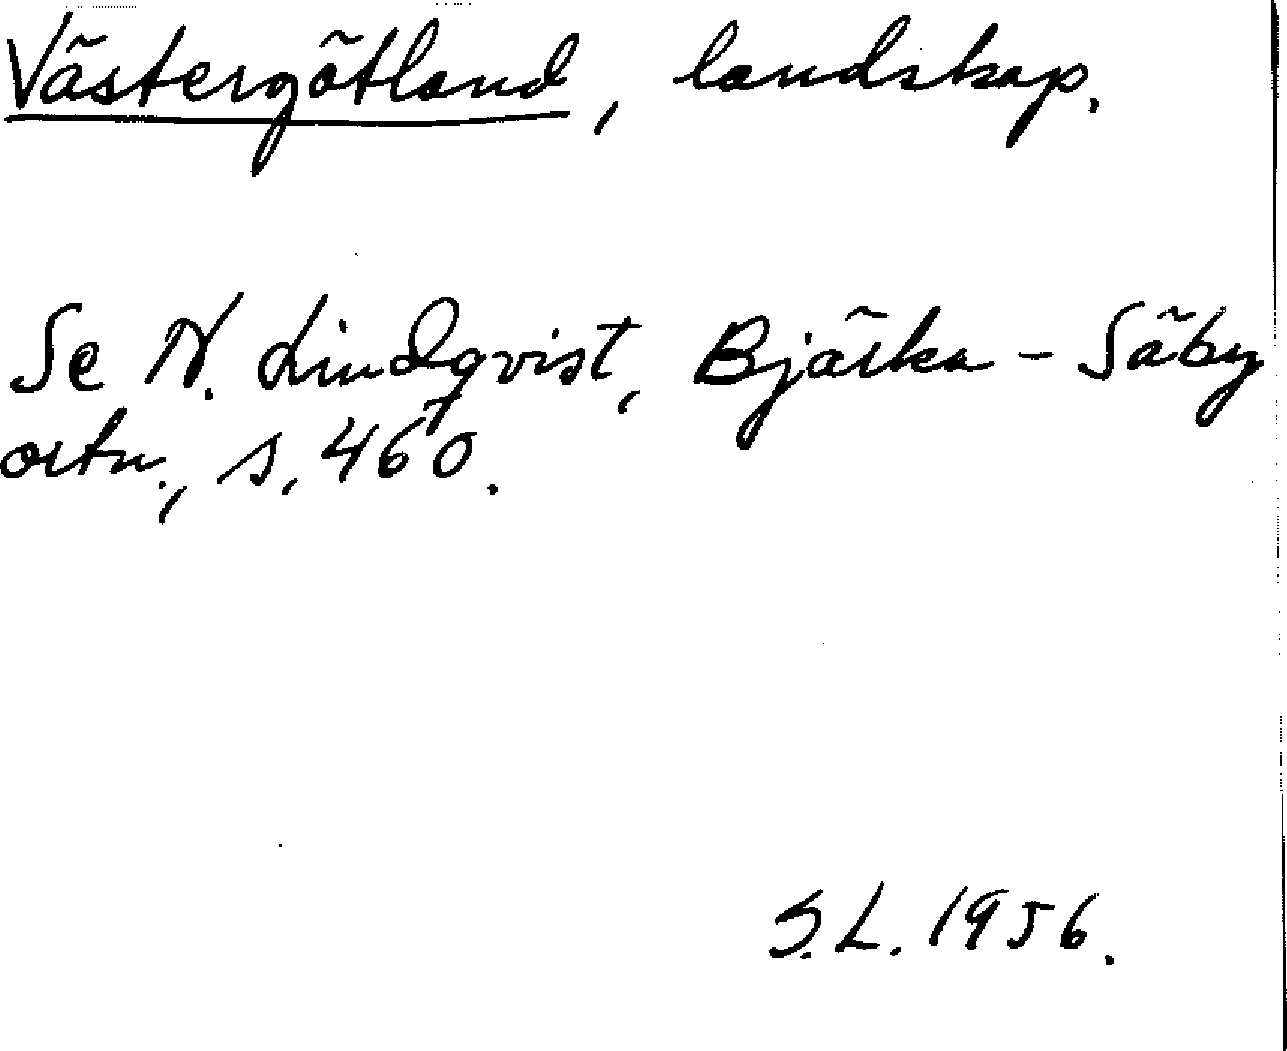 Västergötland, landskap.
Se N. Lindqvist, Bjärka-Säby
ortn., s. 460.
S.L. 1956.